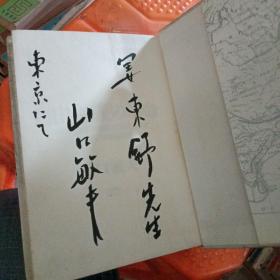 東舒先生
山口敏夫
東京にて